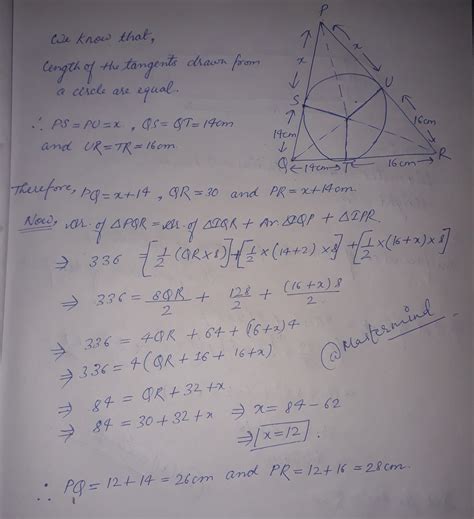 We know that,
length of the tangents drawn from
a circle are equal.
∴ PS = PU = x , QS = QT = 14cm
and UR = TR = 16cm.
P
x
x
S
U
14cm
16cm
Q
14cm
T
16cm
R
Therefore, PQ = x+14 , QR = 30 and PR = x+14cm
Now, Ar. of △PQR = Ar. of △IQR + Ar. △IQP + △IPR
⇒ 336 = [1/2 (QR × 8)] + [1/2 × (14+2) × 8] + [1/2 × (16+x) × 8]
⇒ 336 = 8QR/2 + 128/2 + (16+x)8/2
⇒ 336 = 4QR + 64 + (16+x)4
⇒ 336 = 4(QR + 16 + 16+x)
⇒ 84 = QR + 32 + x.
⇒ 84 = 30 + 32 + x ⇒ x = 84 - 62
⇒ x = 12 .
@Mastermind
∴ PQ = 12 + 14 = 26cm and PR = 12 + 16 = 28cm.